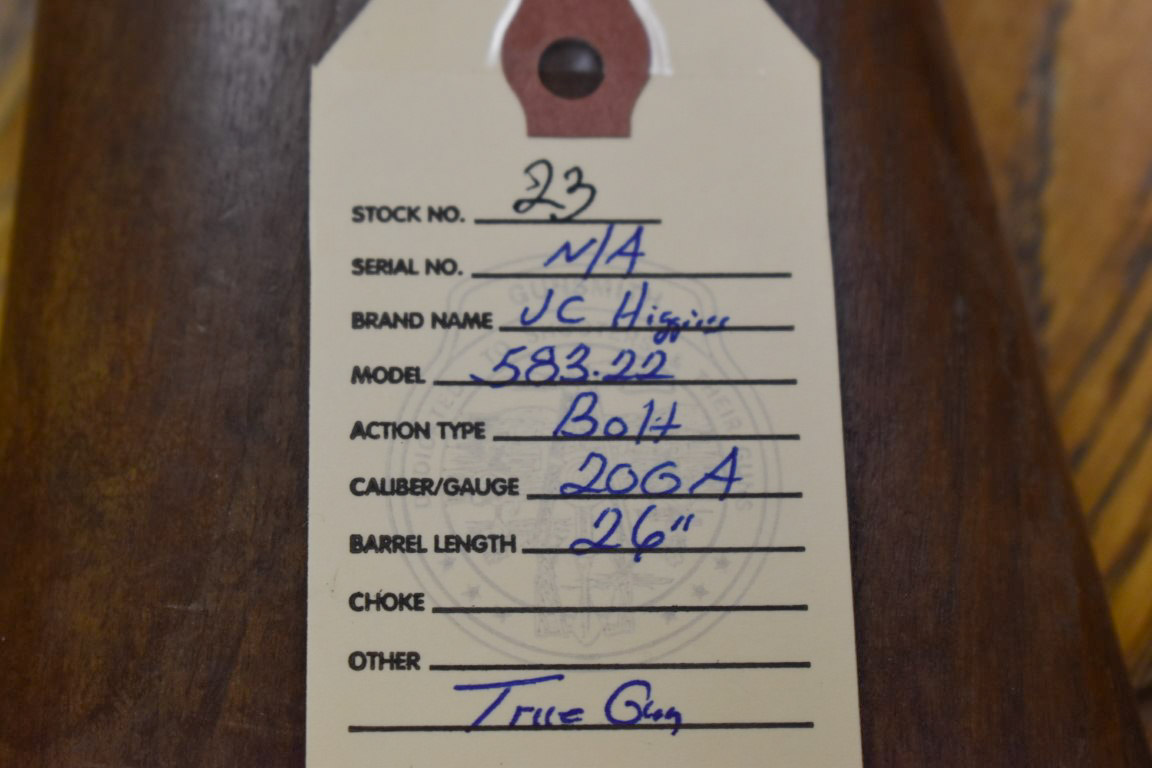 STOCK NO. 23
SERIAL NO. N/A
BRAND NAME JC Higgins
MODEL 583.22
ACTION TYPE Bolt
CALIBER/GAUGE 20GA
BARREL LENGTH 26"
CHOKE
OTHER
True Gun